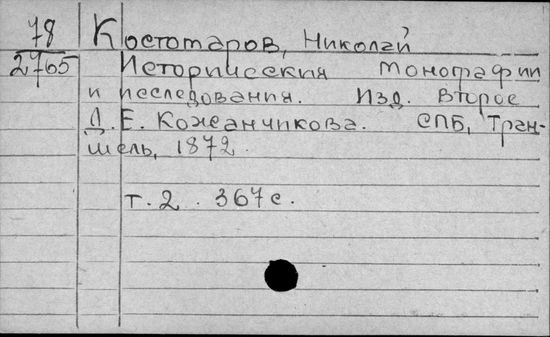 78 Костомаров, Николай
2765 Исторические монографии
и исследования. Изд. второе
Д. Е. Кожанчикова. СПБ, Тран-
шель, 1872.
т. 2. 367 с.